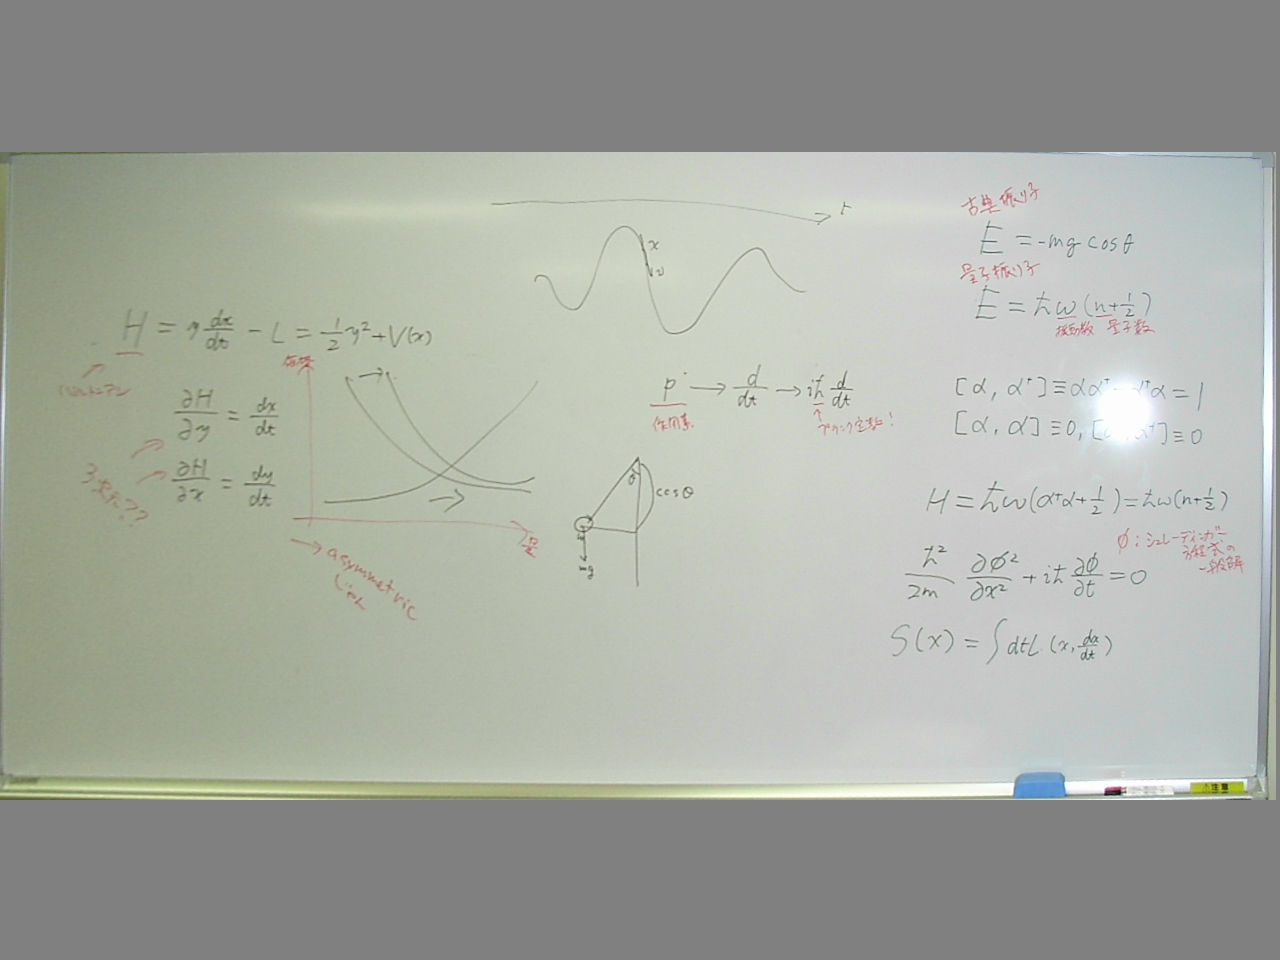 t
x
v
H = y dx/dt - L = 1/2 y² + V(x)
ハミルトニアン
∂H/∂y = dx/dt
∂H/∂x = dy/dt
価格
量
→ asymmetric
p → d/dt → iħ d/dt
作用素
プランク定数!
θ
cosθ
mg
古典振り子
E = -mg cosθ
量子振り子
E = ħω(n+1/2)
振動数 量子数
[α, α†] ≡ αα† - α†α = 1
[α, α] ≡ 0, [α†, α†] ≡ 0
H = ħω(α†α + 1/2) = ħω(n+1/2)
φ: シュレーディンガー
方程式の
一般解
ħ²/2m ∂φ²/∂x² + iħ ∂φ/∂t = 0
S(x) = ∫dtL(x, dx/dt)
注意